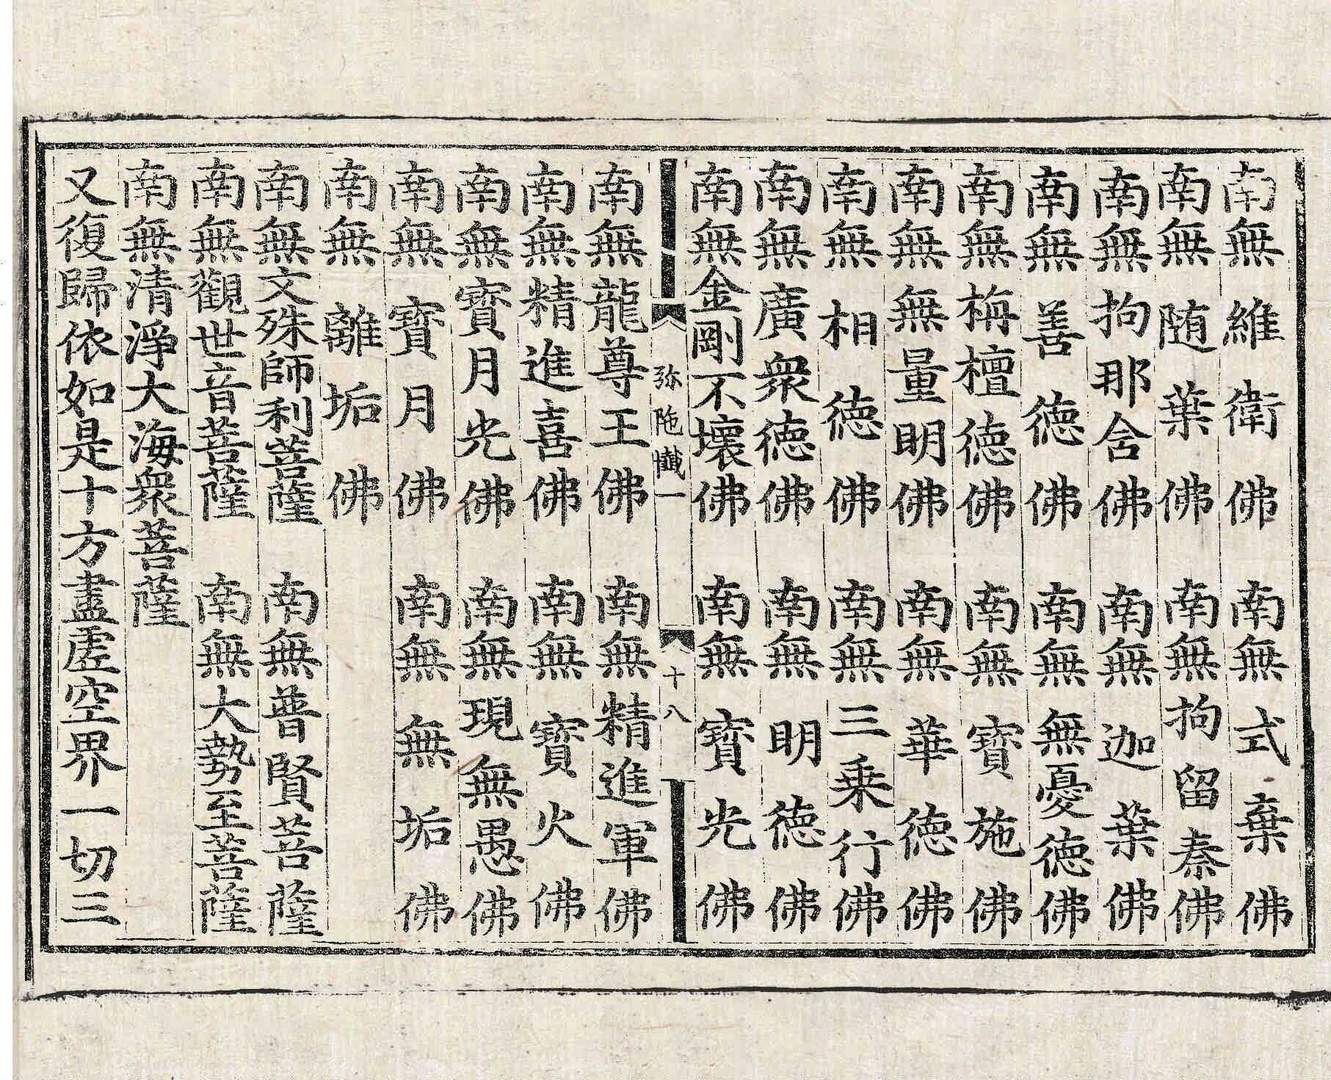 南無維衛佛　南無式棄佛
南無随葉佛　南無拘留秦佛
南無拘那舍佛　南無迦葉佛
南無善德佛　南無無憂德佛
南無栴檀德佛　南無寶施佛
南無無量明佛　南無華德佛
南無相德佛　南無三乗行佛
南無廣衆德佛　南無明德佛
南無金剛不壞佛　南無寶光佛
弥陁懺一　十八
南無龍尊王佛　南無精進軍佛
南無精進喜佛　南無寶火佛
南無寶月光佛　南無現無愚佛
南無寶月佛　南無無垢佛
南無離垢佛
南無文殊師利菩薩　南無普賢菩薩
南無觀世音菩薩　南無大勢至菩薩
南無清淨大海衆菩薩
又復歸依如是十方盡虛空界一切三